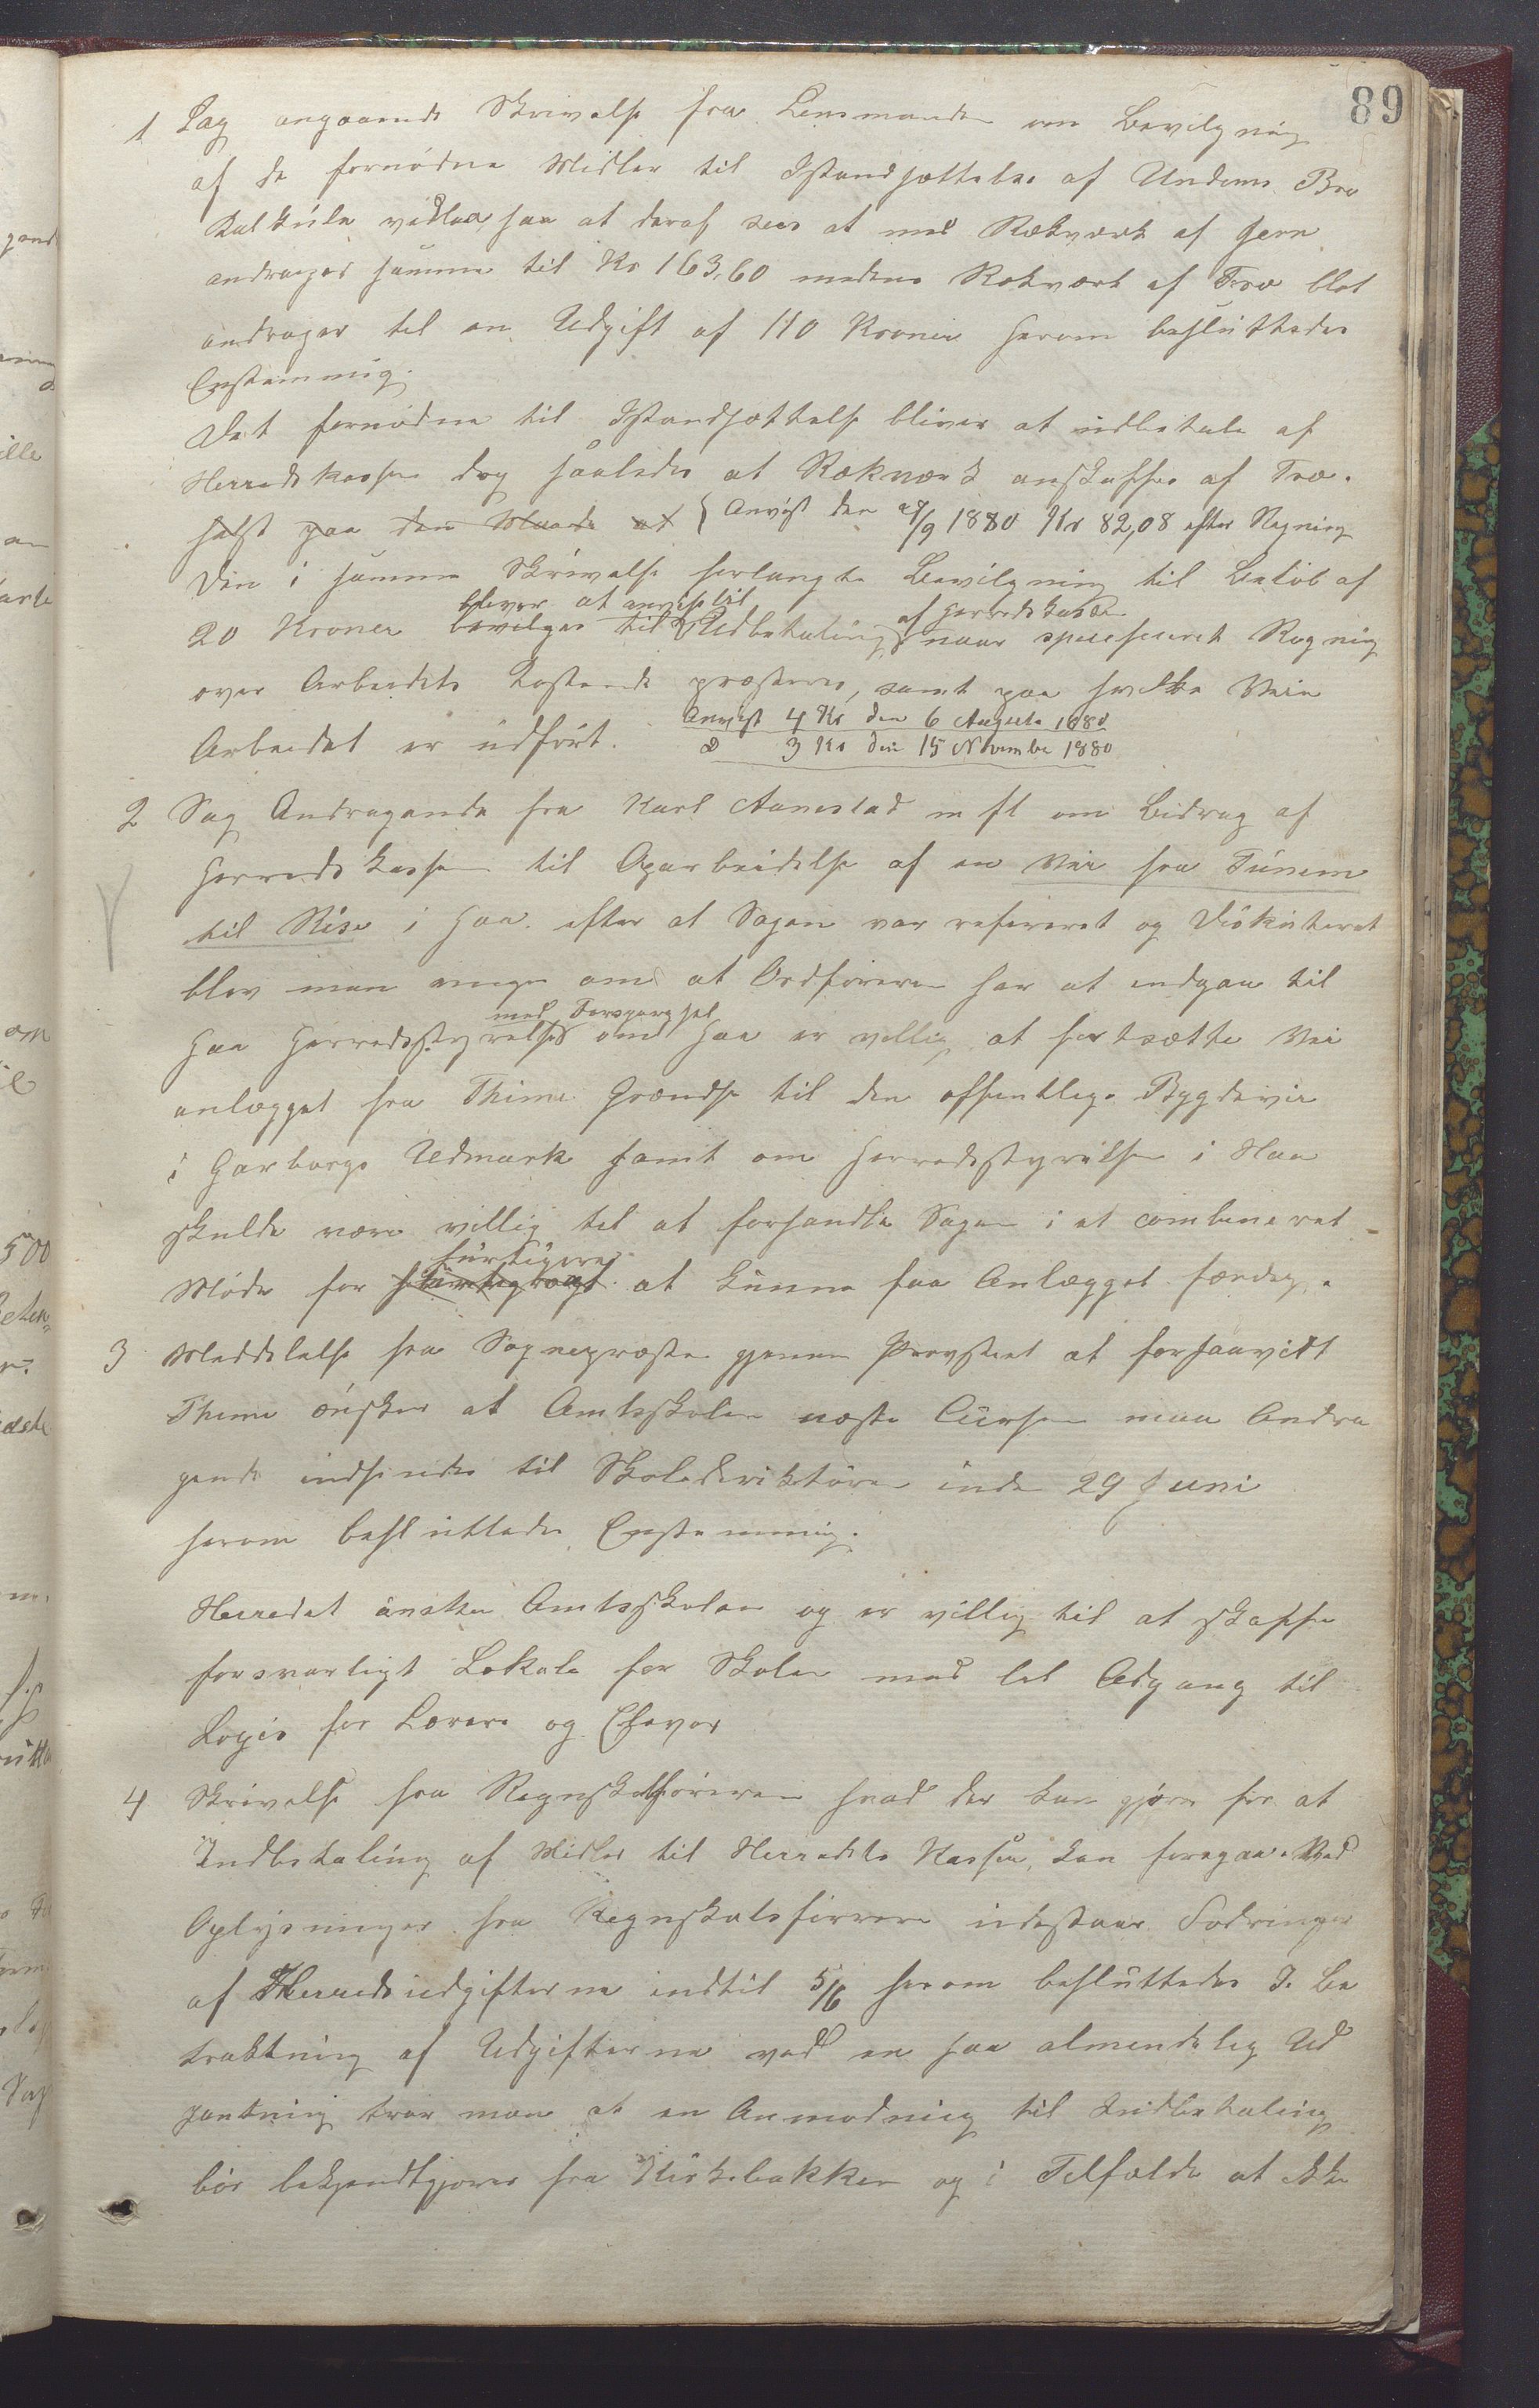 89
1 Sag angaaende Skrivelse fra Lensmanden om Bevilgning
af de fornødne Midler til Istandsættelse af Undems Bro
Kalkule vedlaa saa at deraf sees at med Rækværk af Jern
andrages samme til Kr 163,60 medens Rækværk af Træ blot
andrager til en Udgift af 110 Kroner herom besluttedes
Enstemmig.
Det fornødne til Istandsættelse bliver at udbetale af
Herredskassen dog saaledes at Rækværk anskaffes af Træ.
helst paa den Maade at { Anvist den 28/9 1880 Kr 82,08 efter Regning
Den i samme Skrivelse forlangte Bevilgning til Beløb af
bliver at anvise til af Herredskassen
20 Kroner bevilges til Udbetaling naar specificeret Regning
over Arbeidets Kostende præsteres, samt paa hvilke Veie
Anvist 4 Kr den 6 Augusta 1880
Arbeidet er udført. d 3 Kr den 15 November 1880
2 Sag Andragende fra Karl Aanestad m fl om Bidrag af
Herredskassen til Oparbeidelse af en Vei fra Tunem
til Rise i Haa. efter at Sagen var refereret og Diskuteret
blev man enige om at Ordføreren har at indgaa til
med Forspørgsel
Haa Herredsstyrelse om Haa er villig at fortsætte Vei
anlægget fra Thime Grændse til den offentlige Bygdevei
i Garborgs Udmark samt om Herredsstyrelsen i Haa
skulde være villig til at forhandle Sagen i et combineret
hurtigere
Møde for at kunne faa Anlægget færdig.
3 Meddelelse fra Sognepræsten gjenem Provstiet at forsaavidt
Thime ønsker at Amtsskolen næste Cursen maa Andra
gende indsendes til Skoledirektøren inden 29 Juni
herom besluttedes Enstemmig.
Herredet ønsker Amtsskolen og er villig til at skaffe
forsvarligt Lokale for Skolen med let Adgang til
Logis for Lærere og Elever
4 Skrivelse fra Regnskabsføreren hvad der kan gjøres for at
Indbetaling af Midler til Herredets Kassen, kan foregaa. Ved
Oplysninger fra Regnskabsføreren udestaar Fodringer
af Herredsudgifterne indtil 5/6 herom besluttedes I Be
traktning af Udgifterne ved en saa almindelig Ud
pantning tror man at en Anmodning til Indbetaling
bør bekjendtgjøres fra Kirkebakken og i Tilfælde at ikke